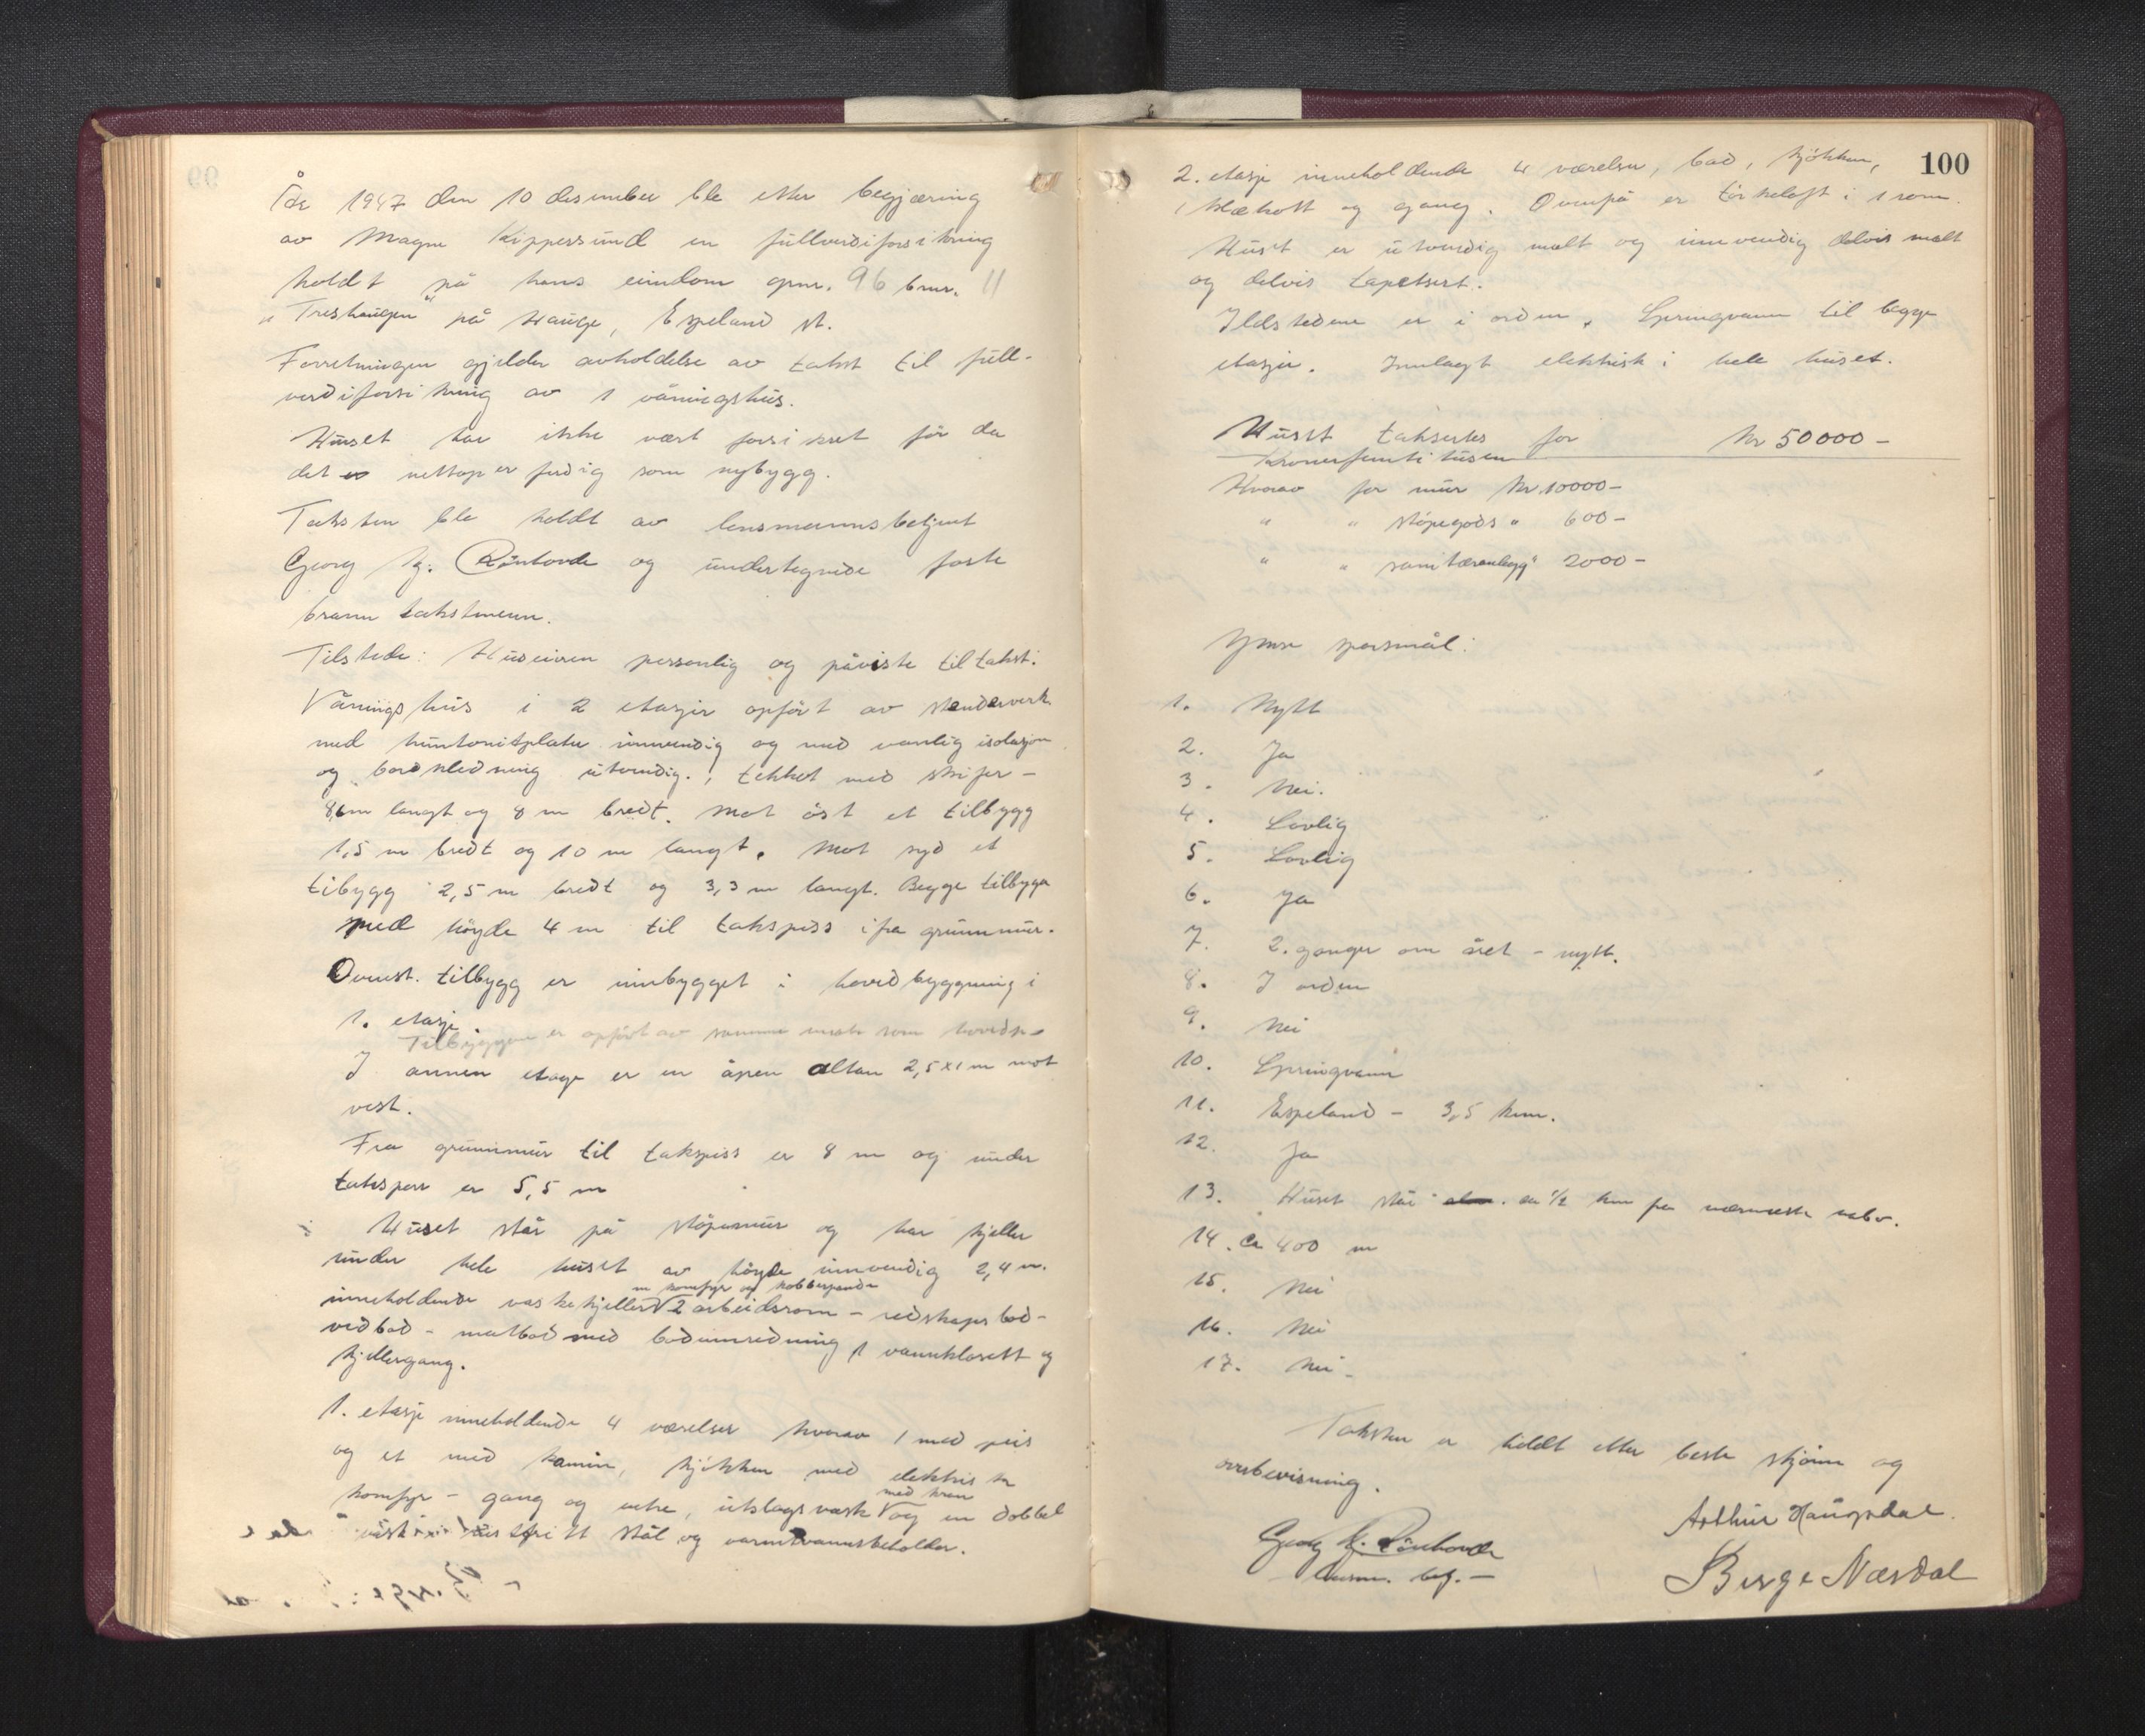 År 1947 den 10 desember ble etter begjæring
av Magne Kippersund en fullverdiforsikring
holdt på hans eiendom gnr. 96 bnr. 11
"Treshaugen" på Hauge, Espeland st.
Forretningen gjelder avholdelse av takst til full-
verdiforsikring av 1 våningshus.
Huset har ikke vært forsikret før da
det nettop er ferdig som nybygg.
Taksten ble holdt av lensmannsbetjent
Georg K. Rönhovde og undertegnede faste
brann takstmenn.
Tilstede: Huseieren personlig og påviste til takst:
Våningshus i 2 etasjer opført av stenderverk
med huntonitplater innvendig og med vanlig isolasjon
og bordkledning utvendig., tekket med skifer -
8,6m langt og 8 m bredt. Mot øst et tilbygg
1,5 m bredt og 10 m langt. Mot syd et
tibygg 2,5 m bredt og 3,3 m langt. Begge tilbygg
med höyde 4 m til takspiss ifra grunnmur.
Ovenst. tilbygg er innbygget i hovedbyggning i
1. etasje.
Tilbyggene er opført av samme mate som hovedh.
I annen etage er en åpen altan 2,5x1 m mot
vest.
Fra grunnmur til takspiss er 8 m og under
taksperr er 5,5 m
Huset står på støpemur og har kjeller
under hele huset av høyde innvendig 2,4 m.
m komfyr og kobberpanne
inneholdende vaskekjeller √ 2 arbeidsrom - redskapsbod -
vedbod - matbod med bodinnredning 1 vannklosett og
kjellergang.
1. etasje inneholdende 4 værelser hvorav 1 med peis
og et med kamin, kjøkken med elektrisk
med kran
komfyr - gang og entre, utslagsvask √ og en dobbel
stål og varmtvannsbeholder.
100
2. etasje inneholdende 4 værelser, bad, kjøkken,
1 klækott og gang. Ovenpå er tørkeloft i 1 rom.
Huset er utvendig malt og innvendig delvis malt
og delvis tapetsert.
Ildstedene er i orden. Springvann til begge
etasjer. Innlagt elektrisk i hele huset.
Huset takseres for Kr 50000 -
Kronerfemtitusen
Hvorav for mur Kr 10000 -
" " støpegods " 600 -
" " sanitæranlegg " 2000 -
Ymse spørsmål:
1. Nytt
2. Ja
3. Nei.
4. Lovlig
5. Lovlig
6. Ja
7. 2. ganger om året - nytt.
8. I orden
9. Nei
10. Springvann
11. Espeland - 3,5 km.
12. Ja
13. Huset står ca 1/2 km fra nærmeste nabo.
14. Ca 400 m
15. Nei
16. Nei
17. Nei -
Taksten er holdt etter beste skjønn og
overbevisning.
Arthur Haugsdal.
Georg K. Rönhovde
lensm. betj. -
Birge Næsdal